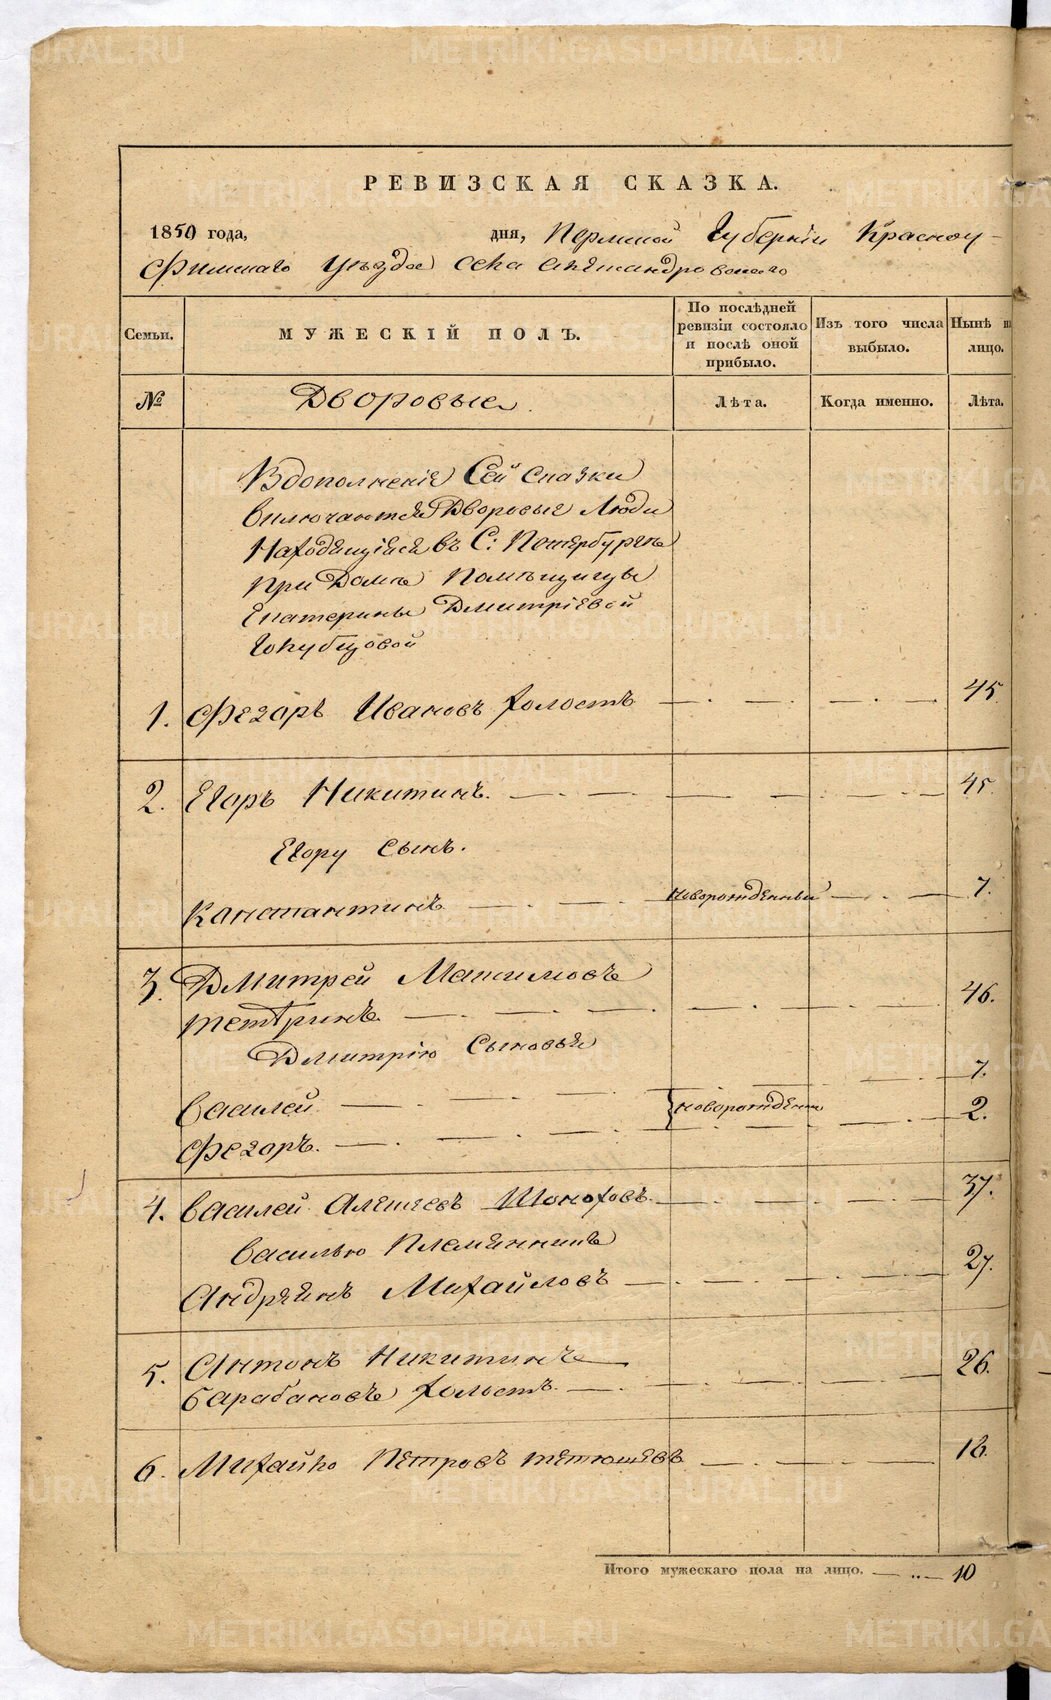 РЕВИЗСКАЯ СКАЗКА.
1850 года, дня, Пермской Губерніи Красноу-
фимскаго Уѣзда села Александровскаго
Семьи. МУЖЕСКІЙ ПОЛЪ. По послѣдней ревизіи состояло и послѣ оной прибыло. Изъ того числа выбыло. Нынѣ на лицо.
№ Дворовые Лѣта. Когда именно. Лѣта.
Вдополненіе Сей сказки
включаются Дворовые Люди
Находящіяся въ С: Петербургѣ
при Домѣ Помѣщицы
Екатерины Дмитріевой
Голубцовой
1. Федоръ Ивановъ холостъ 45
2. Егоръ Никитинъ. 45
Егору сынъ.
Константинъ новорожденный 7.
3. Дмитрей Максимовъ
тетринъ. 46.
Дмитрію Сыновья
Василей 7.
новорожден
Федоръ. 2.
4. Василей Алексѣевъ Шоноховъ. 37.
Василью Племянникъ
Андреянъ Михайловъ 27.
5. Антонъ Никитинъ
Барабановъ холостъ. 26.
6. Михайло Петровъ тетюшевъ 18.
Итого мужескаго пола на лицо. 10
METRIKI.GASO-URAL.RU